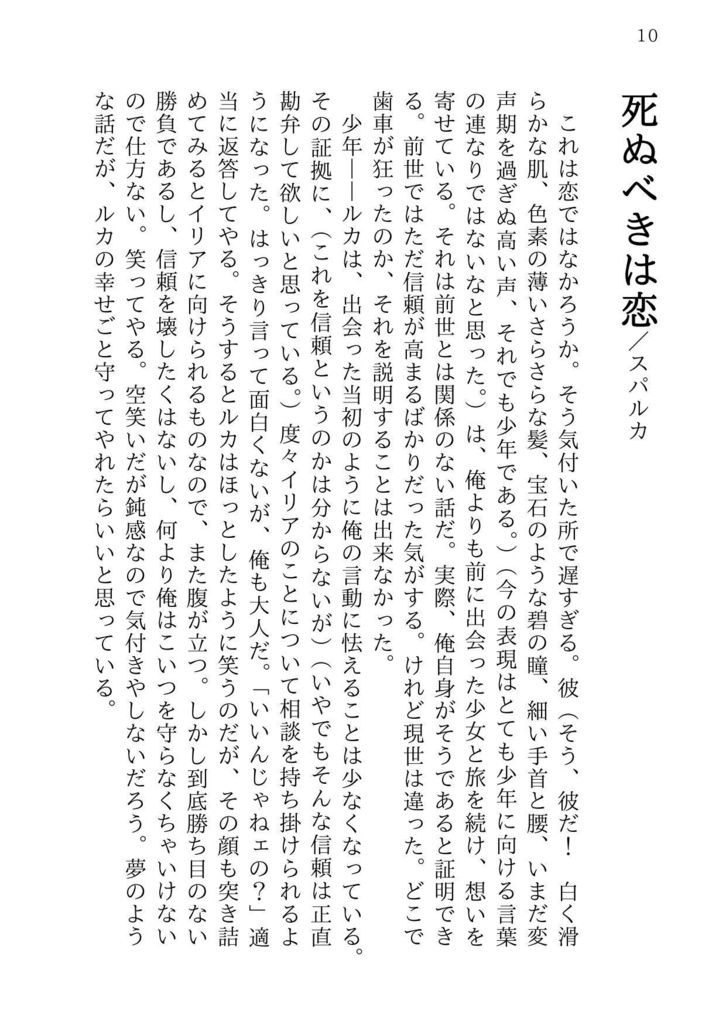 10
死ぬべきは恋／スパルカ
　これは恋ではなかろうか。そう気付いた所で遅すぎる。彼（そう、彼だ！　白く滑
らかな肌、色素の薄いさらさらな髪、宝石のような碧の瞳、細い手首と腰、いまだ変
声期を過ぎぬ高い声、それでも少年である。）（今の表現はとても少年に向ける言葉
の連なりではないなと思った。）は、俺よりも前に出会った少女と旅を続け、想いを
寄せている。それは前世とは関係のない話だ。実際、俺自身がそうであると証明でき
る。前世ではただ信頼が高まるばかりだった気がする。けれど現世は違った。どこで
歯車が狂ったのか、それを説明することは出来なかった。
　少年――ルカは、出会った当初のように俺の言動に怯えることは少なくなっている。
その証拠に、（これを信頼というのかは分からないが）（いやでもそんな信頼は正直
勘弁して欲しいと思っている。）度々イリアのことについて相談を持ち掛けられるよ
うになった。はっきり言って面白くないが、俺も大人だ。「いいんじゃねェの？」適
当に返答してやる。そうするとルカはほっとしたように笑うのだが、その顔も突き詰
めてみるとイリアに向けられるものなので、また腹が立つ。しかし到底勝ち目のない
勝負であるし、信頼を壊したくはないし、何より俺はこいつを守らなくちゃいけない
ので仕方ない。笑ってやる。空笑いだが鈍感なので気付きやしないだろう。夢のよう
な話だが、ルカの幸せごと守ってやれたらいいと思っている。